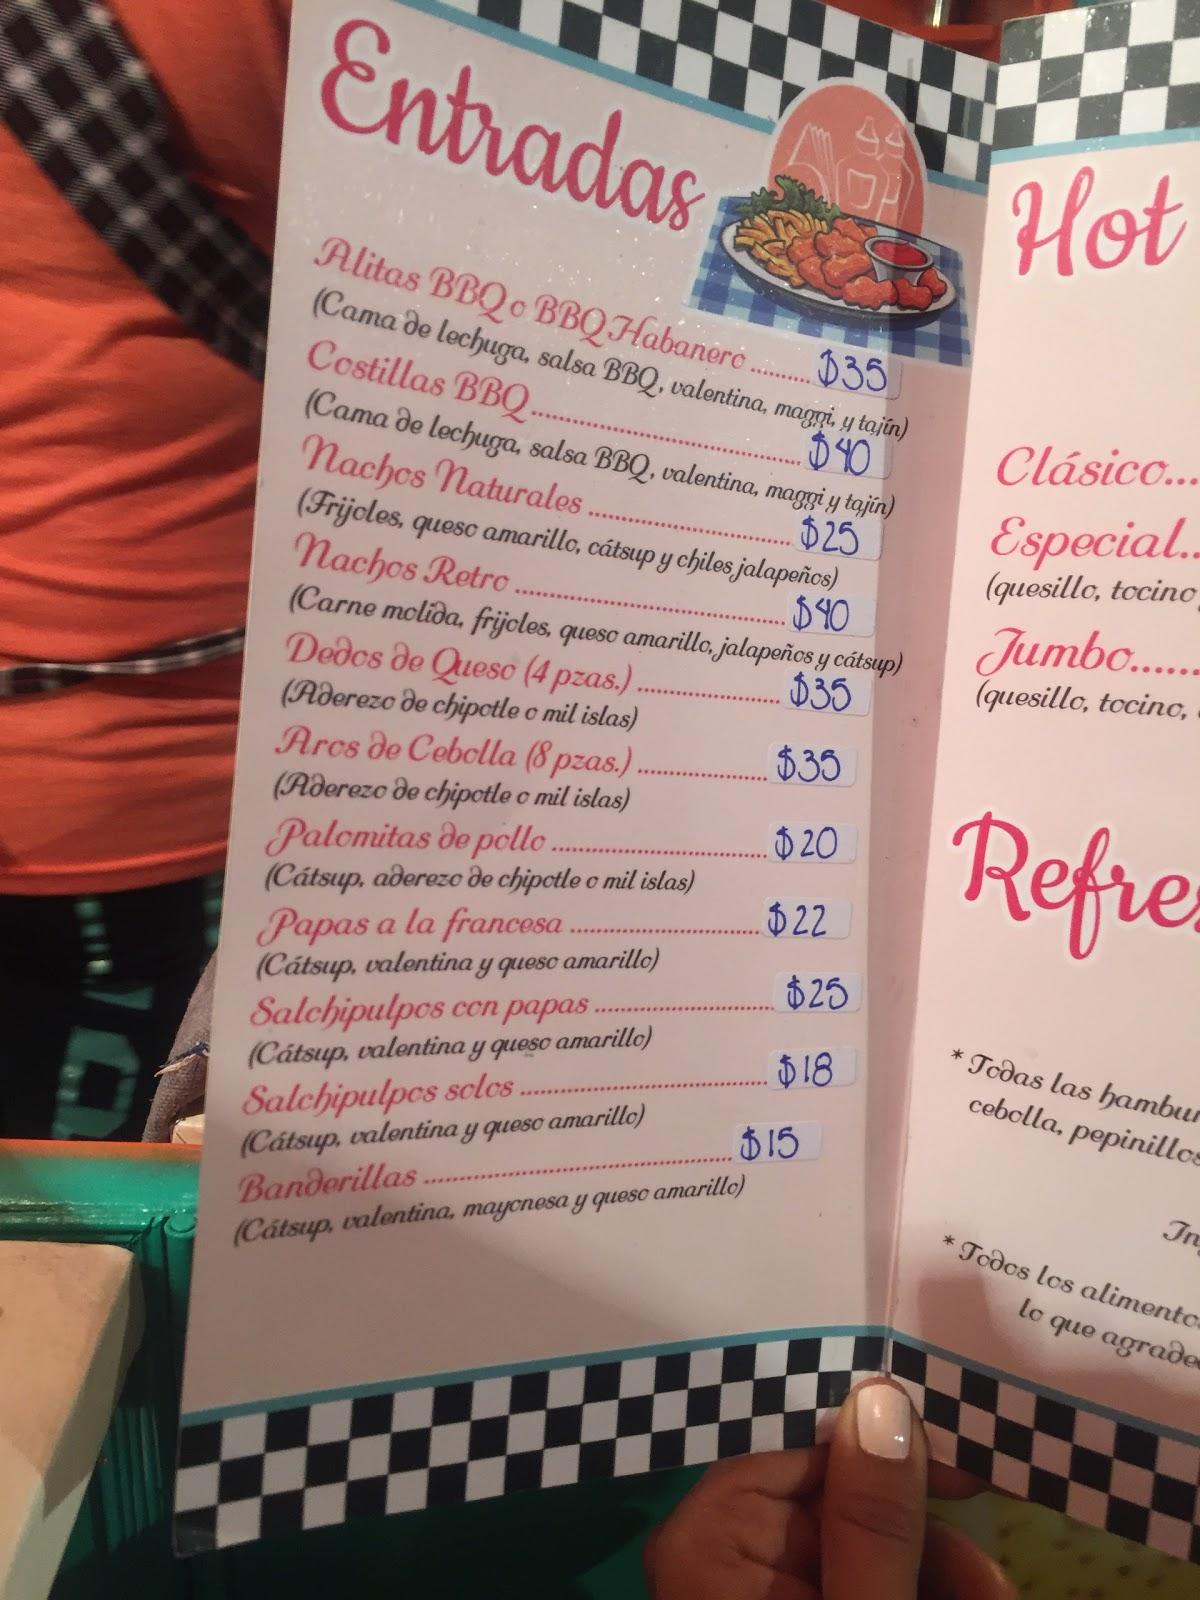 Entradas
Alitas BBQ o BBQ Habanero .......... $35
(Cama de lechuga, salsa BBQ, valentina, maggi, y tajín)
Costillas BBQ .......... $40
(Cama de lechuga, salsa BBQ, valentina, maggi y tajín)
Nachos Naturales .......... $25
(Frijoles, queso amarillo, cátsup y chiles jalapeños)
Nachos Retro .......... $40
(Carne molida, frijoles, queso amarillo, jalapeños y cátsup)
Dedos de Queso (4 pzas.) .......... $35
(Aderezo de chipotle o mil islas)
Aros de Cebolla (8 pzas.) .......... $35
(Aderezo de chipotle o mil islas)
Palomitas de pollo .......... $20
(Cátsup, aderezo de chipotle o mil islas)
Papas a la francesa .......... $22
(Cátsup, valentina y queso amarillo)
Salchipulpos con papas .......... $25
(Cátsup, valentina y queso amarillo)
Salchipulpos solos .......... $18
(Cátsup, valentina y queso amarillo)
Banderillas .......... $15
(Cátsup, valentina, mayonesa y queso amarillo)
Hot
Clásico...
Especial..
(quesillo, tocino
Jumbo......
(quesillo, tocino,
Refres
* Todas las hambur
cebolla, pepinillos
* Todos los alimento
lo que agrade